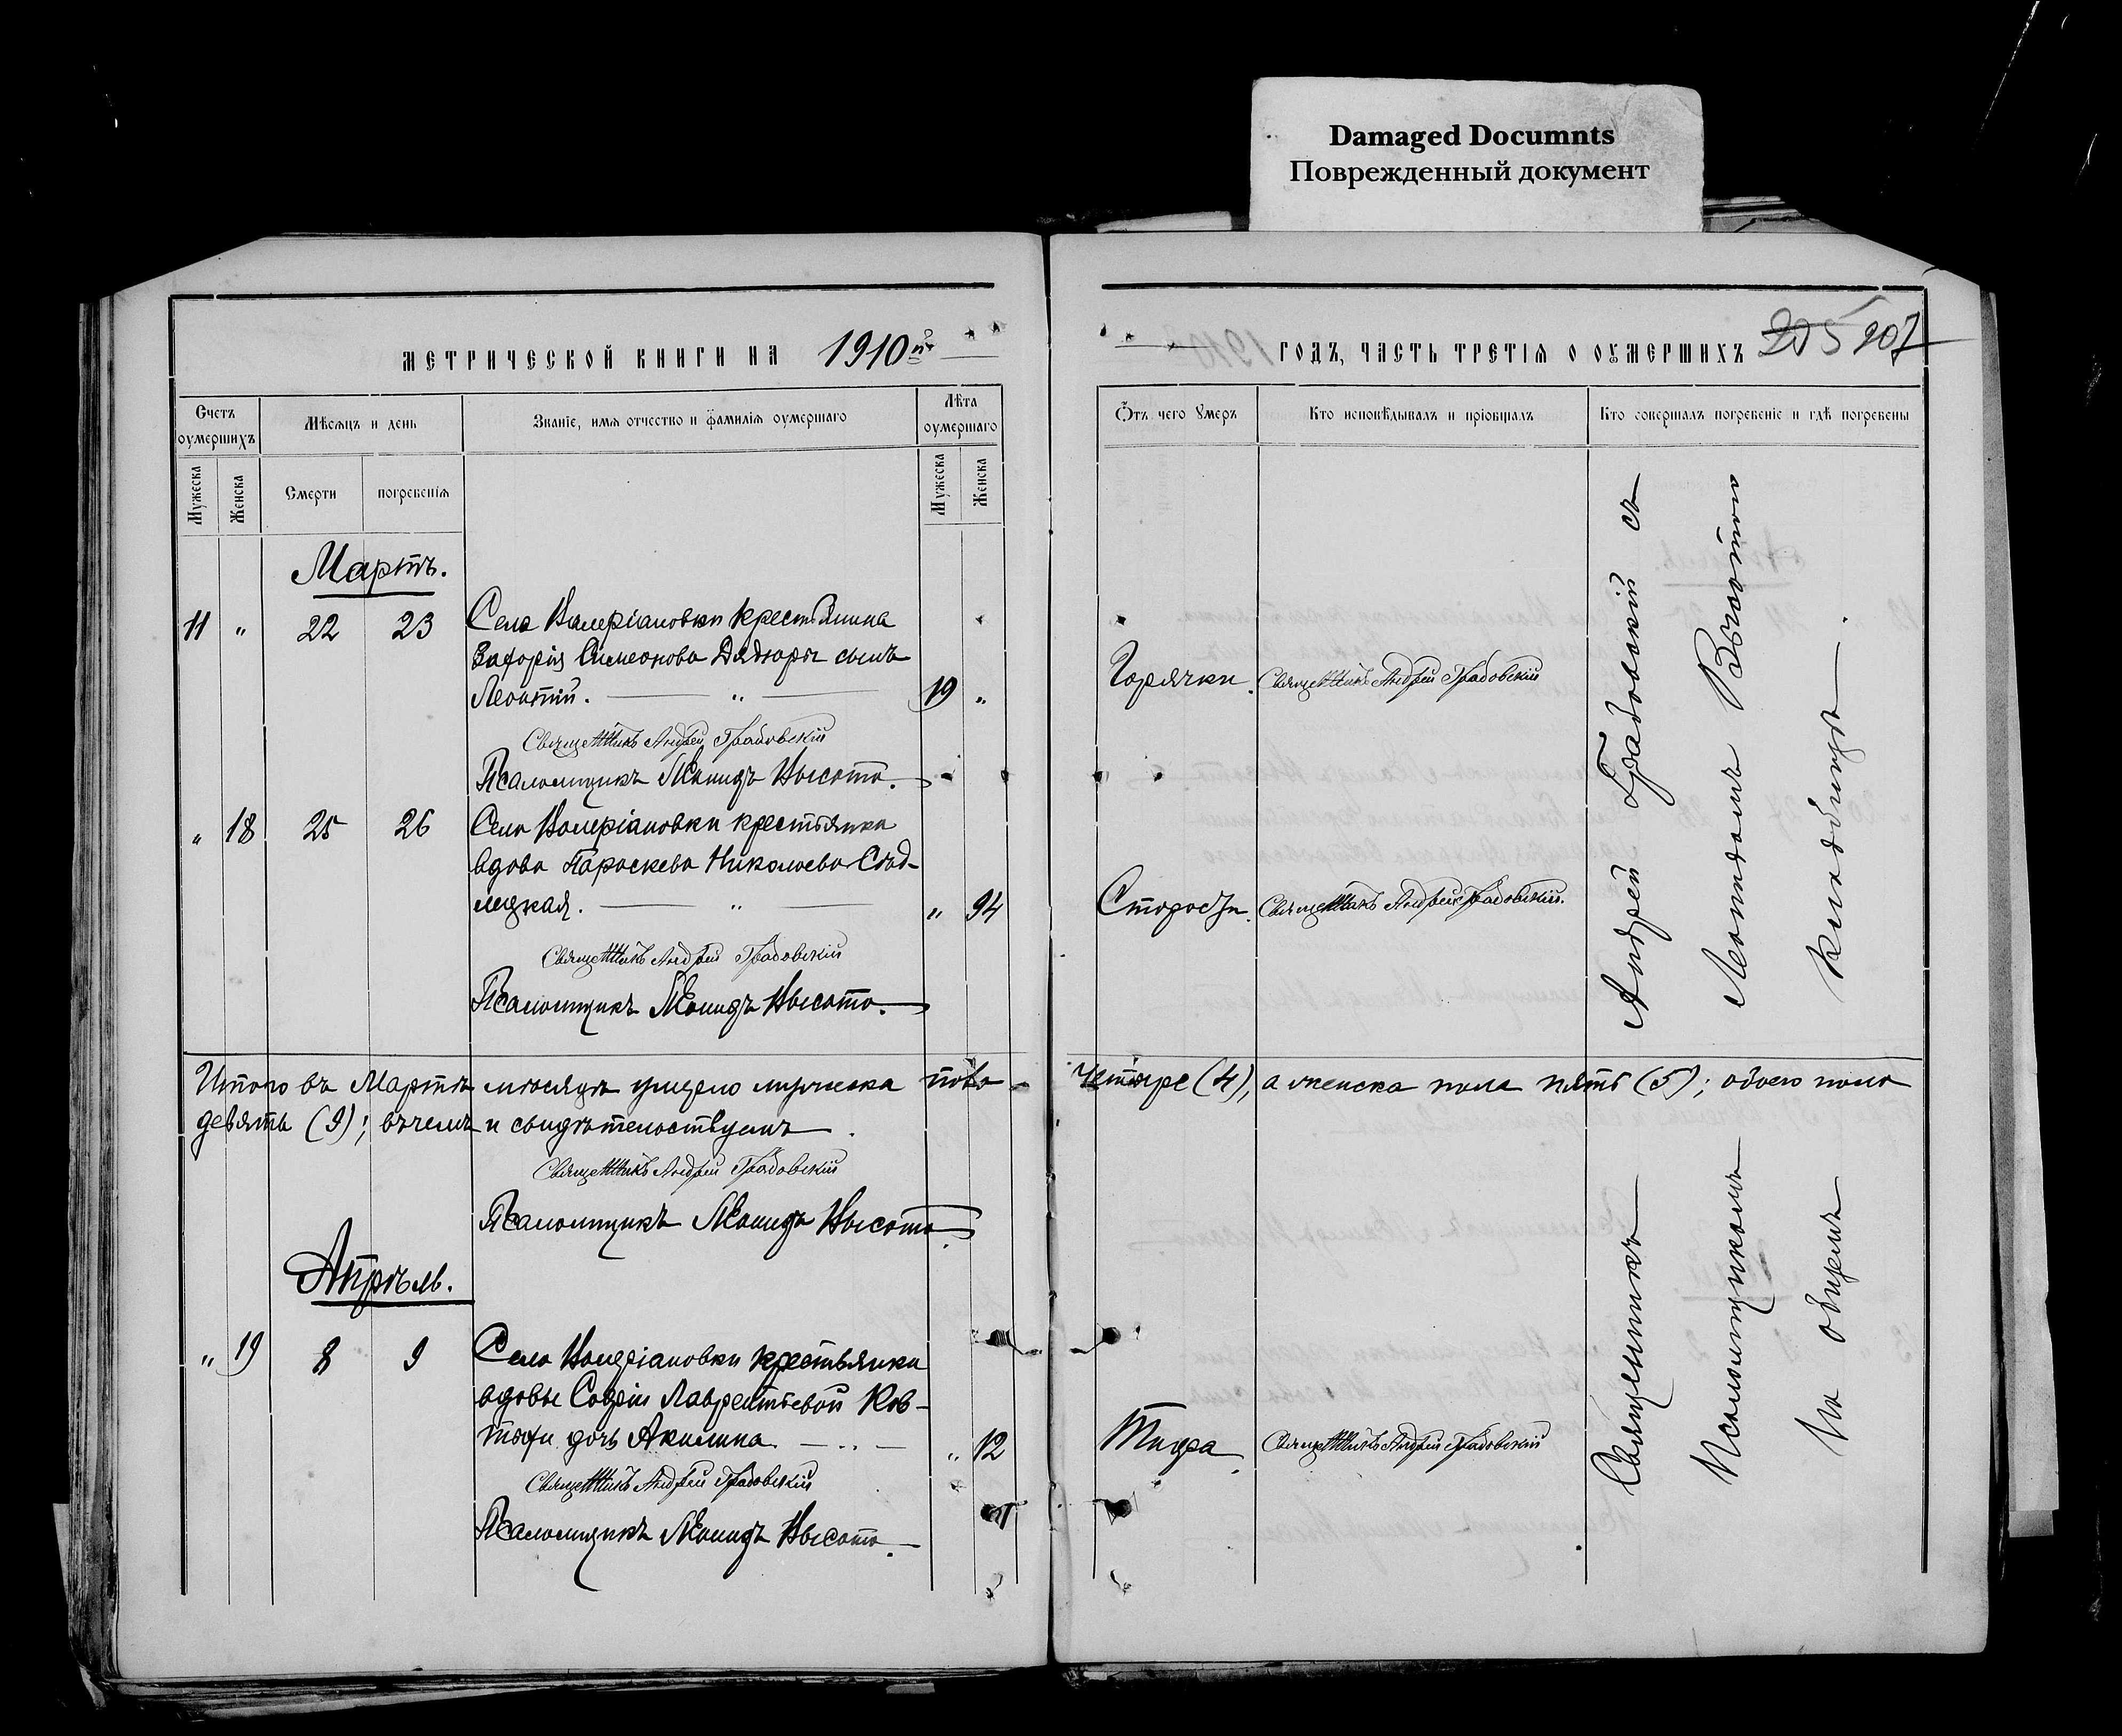 Damaged Documnts
Поврежденный документ
МЕТРИЧЕСКОЙ КНИГИ НА 1910й
ГОДЪ, ЧАСТЬ ТРЕТІЯ О ОУМЕРШИХЪ 205 207
Счетъ оумершихъ
Мѣсяцъ и день
Званіе, имя отчество и фамилія оумершаго
Лѣта оумершаго
Отъ чего умеръ
Кто исповѣдывалъ и пріобщалъ
Кто совершалъ погребеніе и гдѣ погребены
Мужеска
Женска
Смерти
погребенія
Мужеска
Женска
Мартъ.
11 „ 22 23 Села Валеріановки крестьянина
Захарія Симеонова сынъ
Леонтій. — „ — 19 „ Горячки. Священникъ Андрей Градовскій
Священникъ Андрей Градовскій
Псаломщикъ Леонидъ Высота.
„ 18 25 26 Села Валеріановки крестьянка
вдова Параскева Николаева Слад-
лецкая. — „ — „ 94 Старости. Священникъ Андрей Градовскій.
Священникъ Андрей Градовскій
Псаломщикъ Леонидъ Высота.
Итого въ Мартѣ мѣсяцѣ умерло мужеска пола четыре (4), а женска пола пять (5); обоего пола
девять (9); въ чемъ и свидѣтельствуемъ.
Священникъ Андрей Градовскій
Псаломщикъ Леонидъ Высота.
Апрѣль.
„ 19 8 9 Села Валеріановки крестьянки
вдовы Софіи Лаврентьевой Ков-
тюхи дочь Акилина. — „ — „ 12 Тифа. Священникъ Андрей Градовскій
Священникъ Андрей Градовскій
Псаломщикъ Леонидъ Высота.
Священникъ Андрей Градовскій съ
Псаломщикомъ Леонидомъ Высотою
На общемъ кладбищѣ.